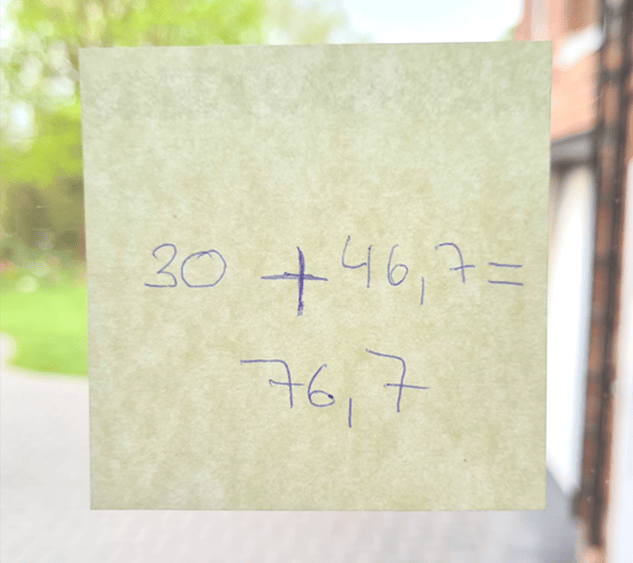 30 + 46,7=
76,7